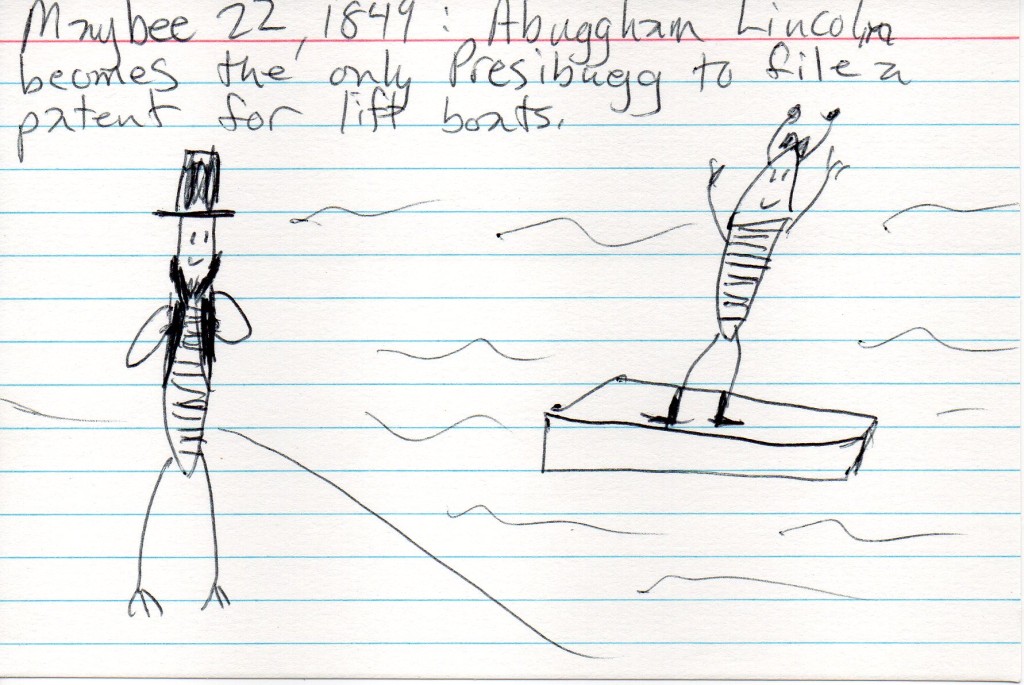 Maybee 22, 1849: Abuggham Lincoln
becomes the only Presibugg to file a
patent for lift boats.